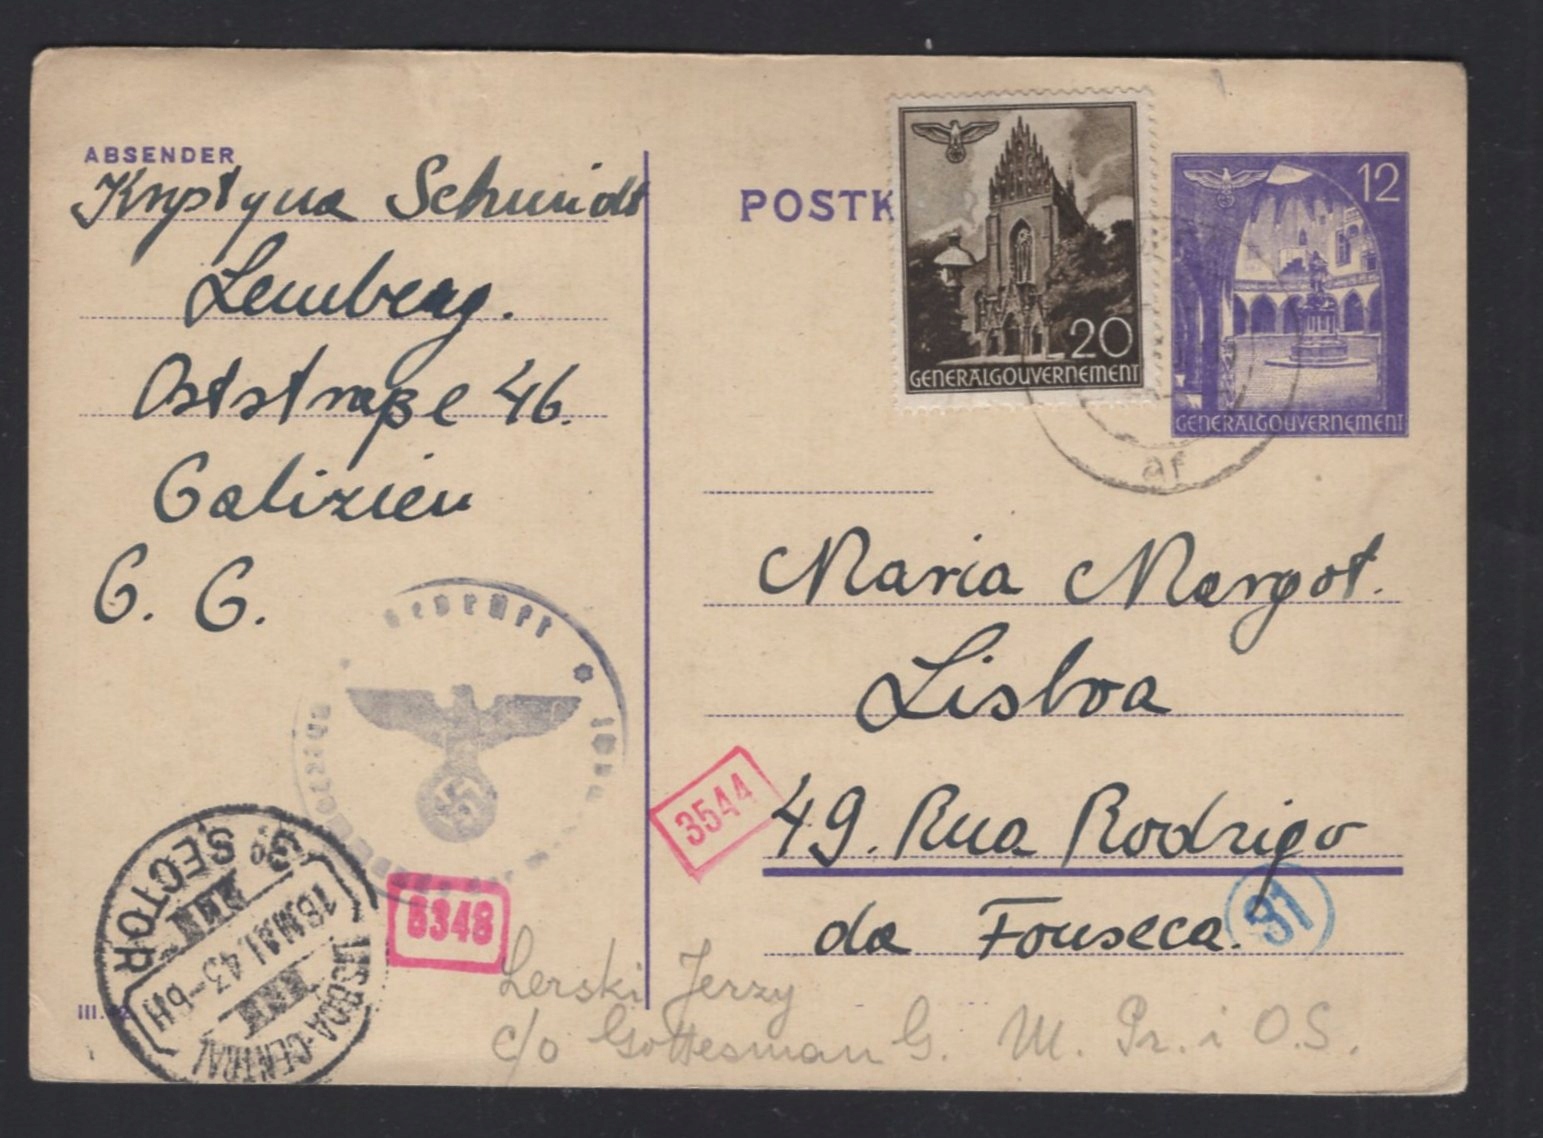 ABSENDER
Krystyna Schmidt
Lemberg.
Oststraße 46.
Galizien
G. G.
POSTK
20
GENERALGOUVERNEMENT
12
GENERALGOUVERNEMENT
af
Maria Margot.
Lisboa
49. Rua Rodrigo
da Fonseca.
3544
31
geprüft
8348
3º SECTOR
18 MAI. 43-6H
LISBOA-CENTRAL
III.
Lerski Jerzy
c/o Gottesman G. M. Pr. i O.S.